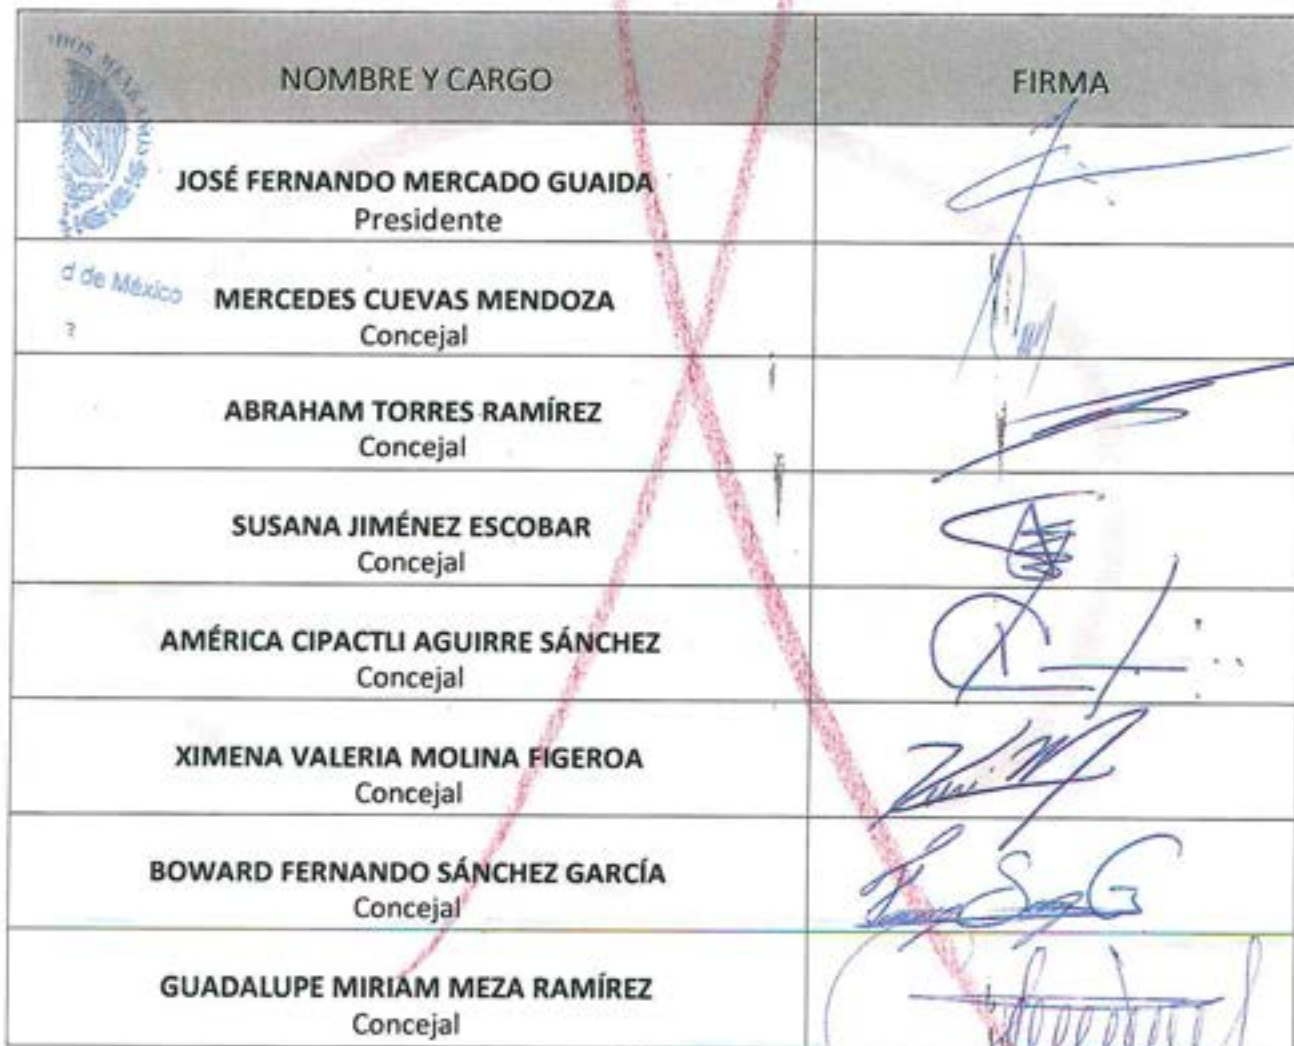 NOMBRE Y CARGO FIRMA
JOSÉ FERNANDO MERCADO GUAIDA
Presidente
d de México
MERCEDES CUEVAS MENDOZA
?
Concejal
ABRAHAM TORRES RAMÍREZ
Concejal
SUSANA JIMÉNEZ ESCOBAR
Concejal
AMÉRICA CIPACTLI AGUIRRE SÁNCHEZ
Concejal
XIMENA VALERIA MOLINA FIGEROA
Concejal
BOWARD FERNANDO SÁNCHEZ GARCÍA
Concejal
GUADALUPE MIRIAM MEZA RAMÍREZ
Concejal